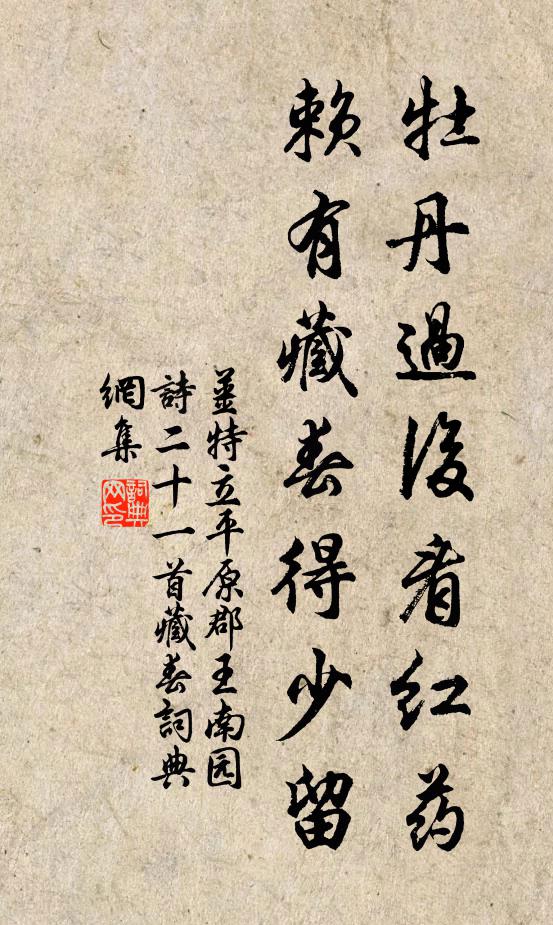 牡丹過後看红药
賴有藏春得少留
姜特立平原郡王南园
詩二十一首藏春詞典
網集
詞典網印